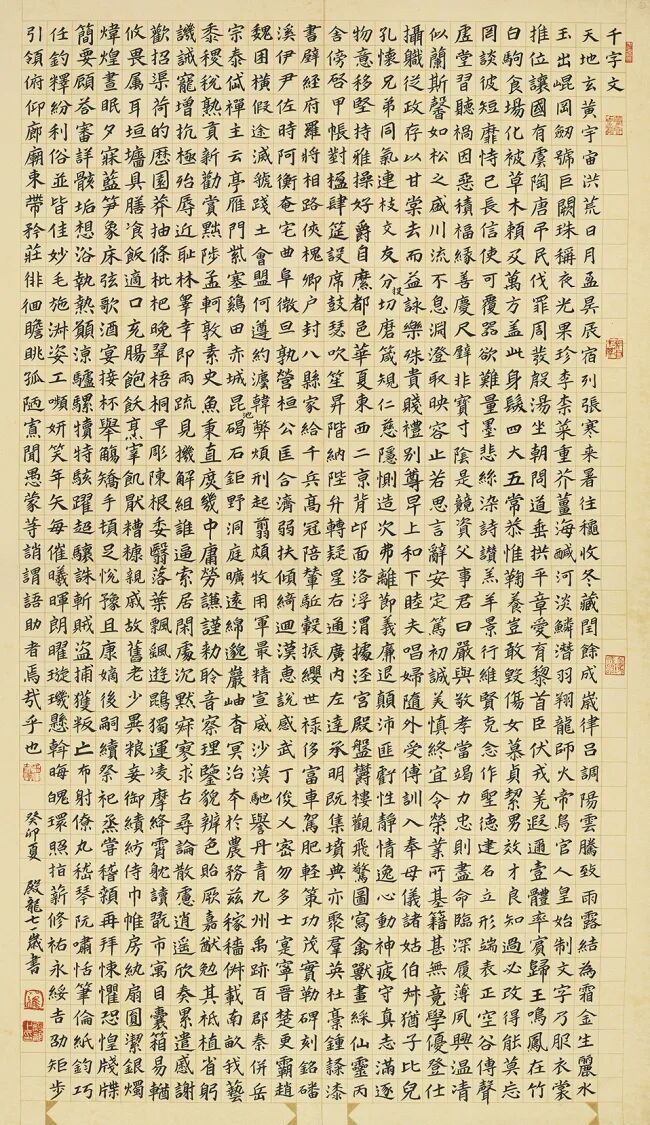 千字文
天地玄黃宇宙洪荒日月盈昃辰宿列張寒來暑往穐收冬藏閏餘成歲律呂調陽雲騰致雨露結為霜金生麗水
玉出崐岡劒號巨闕珠稱夜光果珍李柰菜重芥薑海醎河淡鱗潛羽翔龍師火帝鳥官人皇始制文字乃服衣裳
推位讓國有虞陶唐弔民伐罪周發殷湯坐朝問道垂拱平章愛育黎首臣伏戎羌遐邇壹體率賓歸王鳴鳳在竹
白駒食場化被草木賴及萬方蓋此身髮四大五常恭惟鞠養豈敢毀傷女慕貞絜男效才良知過必改得能莫忘
罔談彼短靡恃己長信使可覆器欲難量墨悲絲染詩讚羔羊景行維賢克念作聖德建名立形端表正空谷傳聲
虛堂習聽禍因惡積福緣善慶尺璧非寶寸陰是競資父事君曰嚴與敬孝當竭力忠則盡命臨深履薄夙興溫凊
似蘭斯馨如松之盛川流不息淵澄取映容止若思言辭安定篤初誠美慎終宜令榮業所基籍甚無竟學優登仕
攝職從政存以甘棠去而益詠樂殊貴賤禮別尊早上和下睦夫唱婦隨外受傅訓入奉母儀諸姑伯叔猶子比兒
孔懷兄弟同氣連枝交友分投切磨箴規仁慈隱惻造次弗離節義廉退顛沛匪虧性靜情逸心動神疲守真志滿逐
物意移堅持雅操好爵自縻都邑華夏東西二京背邙面洛浮渭據涇宮殿盤鬱樓觀飛驚圖寫禽獸畫綵仙靈丙
舍傍啓甲帳對楹肆筵設席鼓瑟吹笙昇階納陛升轉疑星右通廣內左達承明既集墳典亦聚羣英杜稾鍾隸漆
書壁經府羅將相路俠槐卿户封八縣家給千兵高冠陪輦驅轂振纓世祿侈富車駕肥輕策功茂實勒碑刻銘磻
溪伊尹佐時阿衡奄宅曲阜微旦孰營桓公匡合濟弱扶傾綺迴漢惠說感武丁俊乂密勿多士寔寧晉楚更霸趙
魏困橫假途滅虢踐土會盟何遵約灋韓弊煩刑起翦頗牧用軍最精宣威沙漠馳譽丹青九州禹跡百郡秦併岳
宗泰岱禪主云亭雁門紫塞鷄田赤城昆池碣石鉅野洞庭曠遠綿邈巖岫杳冥治本於農務茲稼穡俶載南畝我藝
黍稷稅熟貢新勸賞黜陟孟軻敦素史魚秉直庶幾中庸勞謙謹勑聆音察理鑒貌辨色貽厥嘉猷勉其祗植省躬
譏誡寵增抗極殆辱近耻林睾幸即兩疏見機解組誰逼索居閑處沉默寂寥求古尋論散慮逍遥欣奏累遣慼謝
歡招渠荷的歷園莽抽條枇杷晚翠梧桐早彫陳根委翳落葉飄颻遊鵾獨運凌摩絳霄耽讀翫市寓目囊箱易輶
攸畏屬耳垣墻具膳飡飯適口充腸飽飫烹宰飢厭糟糠親戚故舊老少異糧妾御績紡侍巾帷房紈扇圓潔銀燭
煒煌晝眠夕寐藍筍象床弦歌酒宴接杯舉觴矯手頓足悅豫且康嫡後嗣續祭祀蒸嘗稽顙再拜悚懼恐惶牋牒
簡要顧荅審詳骸垢想浴執熱願涼驢騾犢特駭躍超驤誅斬賊盗捕獲叛亡布射僚丸嵇琴阮嘯恬筆倫紙鈞巧
任釣釋紛利俗並皆佳妙毛施淑姿工嚬妍笑年矢每催曦暉朗曜璇璣懸斡晦魄環照指薪修祐永綏吉劭矩步
引領俯仰廊廟束帶矜莊徘徊瞻眺孤陋寡聞愚蒙等誚謂語助者焉哉乎也
癸卯夏 殷龍七一歲書